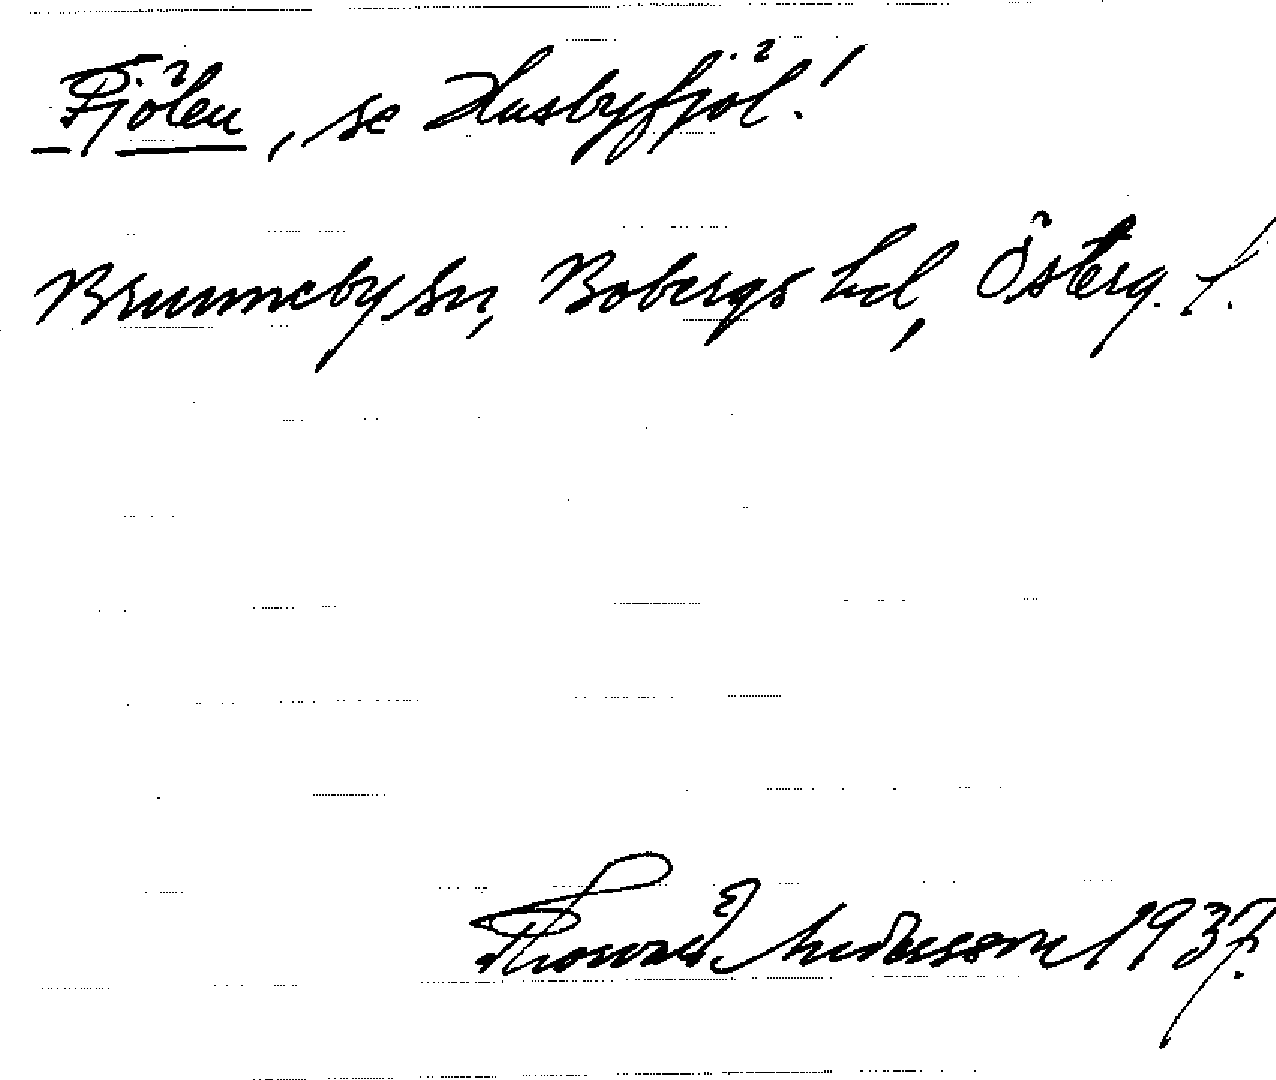 Fjölen, se Husbyfjöl!
Brunneby sn, Bobergs hd, Österg. l.
Thorvald Andersson 1937.